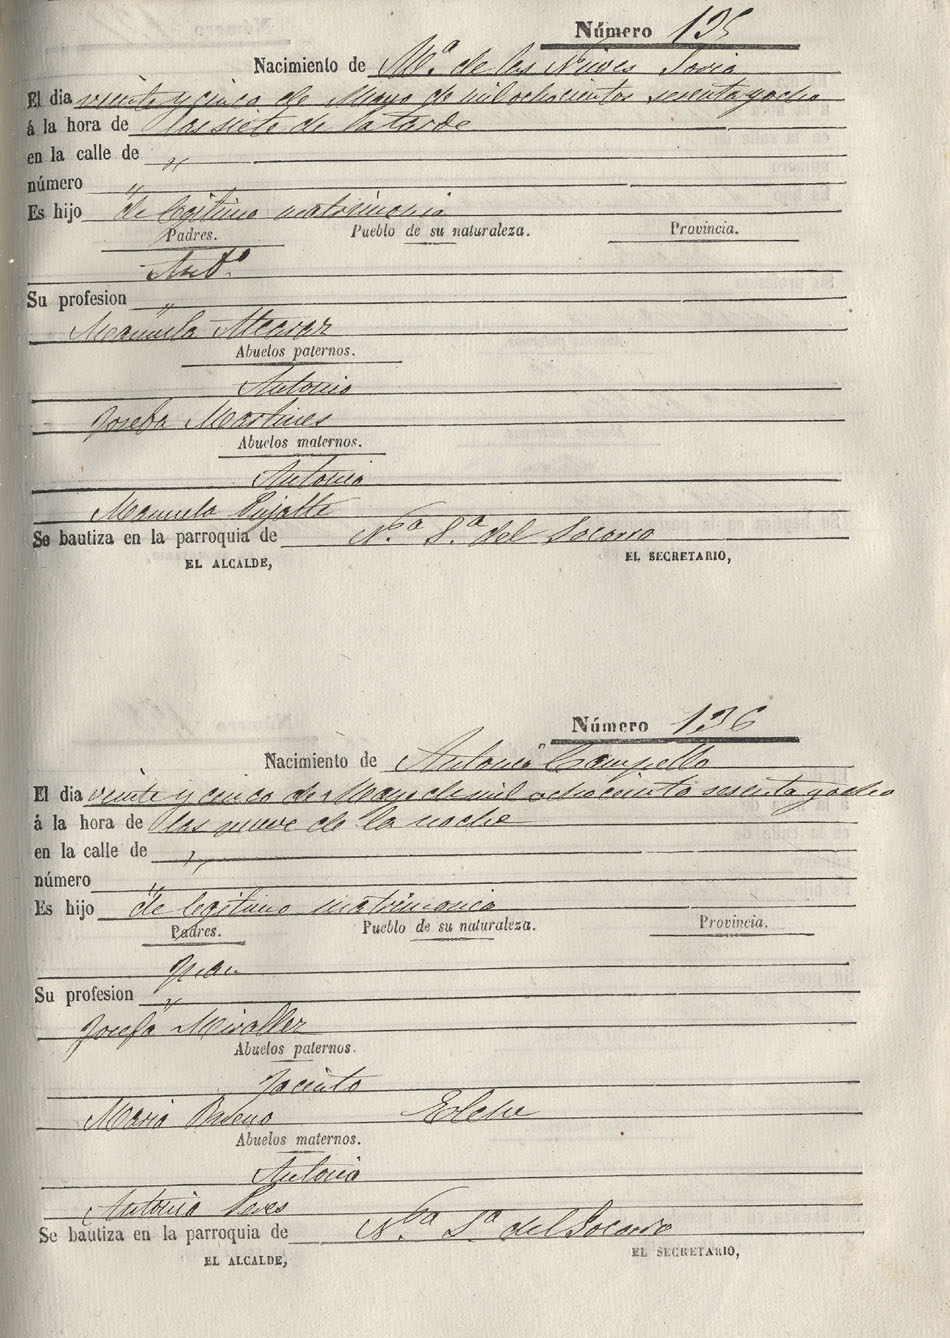 Número 135
Nacimiento de Mª. de las Nieves Soria
El dia veinte y cinco de Mayo de mil ochocientos sesenta y ocho
á la hora de las siete de la tarde
en la calle de "
número "
Es hijo de legitimo matrimonio
Padres. Pueblo de su naturaleza. Provincia.
Antº.
Su profesion "
Manuela Alcaraz
Abuelos paternos.
Antonio
Josefa Martines
Abuelos maternos.
Antonio
Manuela Pujalte
Se bautiza en la parroquia de N.ª S.ª del Socorro
EL ALCALDE, EL SECRETARIO,
Número 136
Nacimiento de Antonia Campello
El dia veinte y cinco de Mayo de mil ochociento sesenta y ocho
á la hora de las nueve de la noche
en la calle de "
número "
Es hijo de legitimo matrimonio
Padres. Pueblo de su naturaleza. Provincia.
Juan
Su profesion "
Josefa Miralles
Abuelos paternos.
Jacinto
Maria Elche
Abuelos maternos.
Antonio
Antonia Peres
Se bautiza en la parroquia de Nª S.ª del Socorro
EL ALCALDE, EL SECRETARIO,